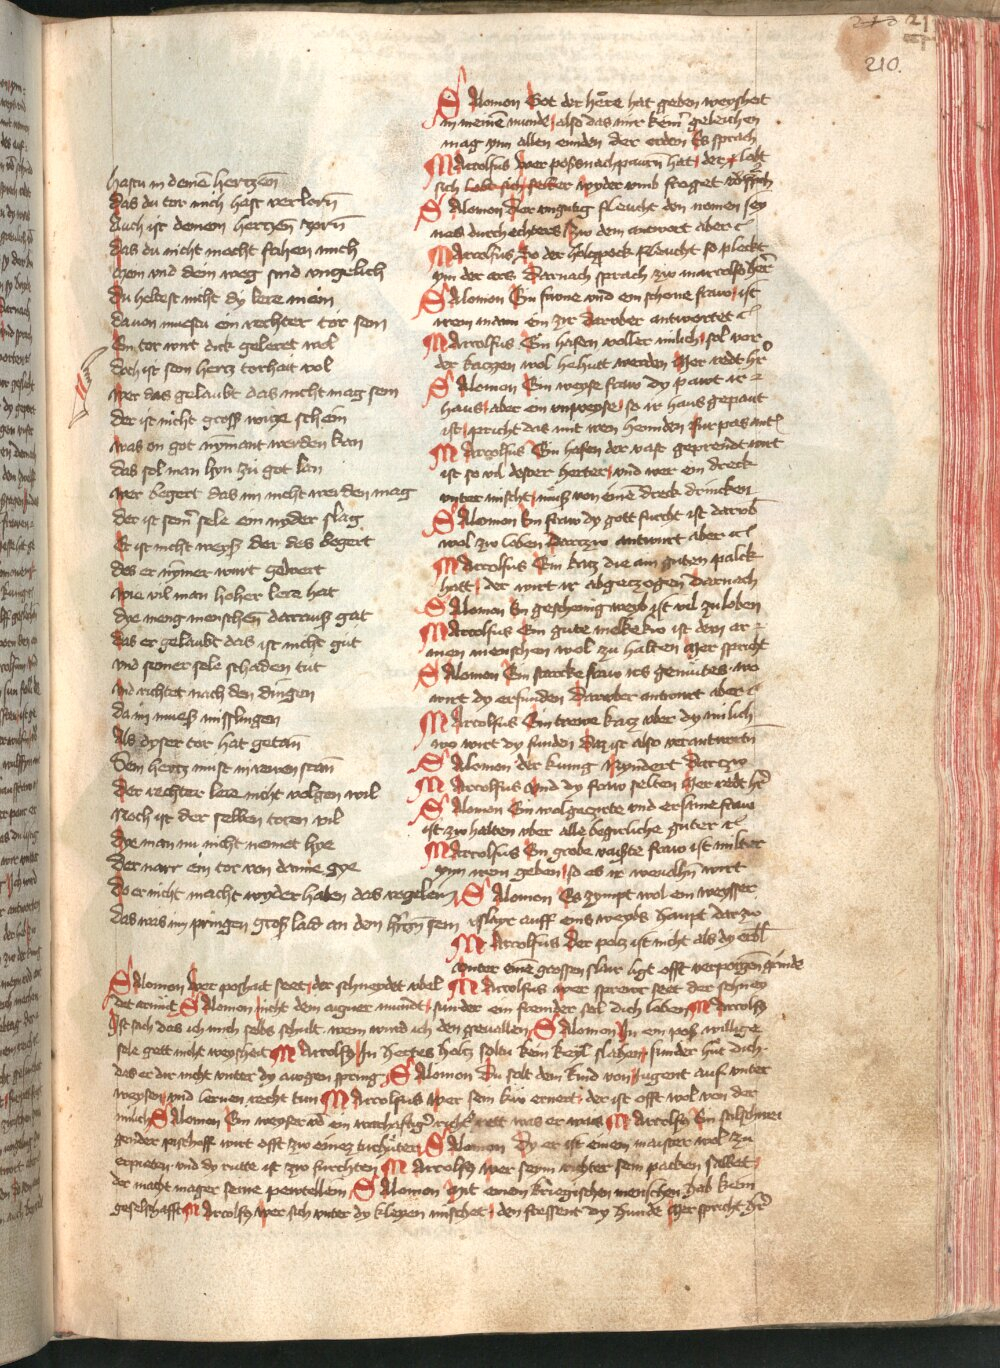 210
21
210.
hastu in deinē hertzen
das du tor mich hast verlorn
Auch ist deinem hertzen zorn
das du nicht mocht fahen mich
mein vnd dein weg sind vngelich
du heltest nicht dy lere mein
davon muestu ein rechter tor sein
Ein tor wirt dick geleret wol
doch ist sein hertz torheit vol
wer das gelaubt das nicht mag sein
der ist nicht gross witze schein
was on got nymant werden kan
das sol man hyn zu got lan
wer begert das im nicht werden mag
der ist seinˉ sele ein nyder slag
Er ist nicht weysz der des begert
des er nymer wirt gewert
wie vil man hoher lere hat
dye meng menschen darauß gat
das er gelaubt das ist nicht gut
vnd seiner sele schaden tut
vnd richtet nach den dingen
da im mueß misslingen
Als dyser tor hat getan
Sein hertz must in rewen stan
der rechter lere nicht volgen wil
Noch ist der selben toren vil
dye man nu nicht nemet hye
Der narr ein tor von danne gye
do er nicht macht wyder haben das vogelein
das was im pringen groß laid an dem hertzen sein
SAlomon Got der herre hat geben weysheit
in meinē munde also das mir kein geleichen
mag ynn allen ennden der erden Es sprach
MArcolfus wer poss nachpaurn hat der lobt
sich lobt sich selber wyder vmb fraget
SAlomon Der vngutig fleucht den nomen sey
nes durchechters Zw dem anwort aber ꝛc
MArcolfus So der holtzpock fleucht so pleckt
ym der ars Darnach sprach zw marcolfo her
SAlomon Ein frume vnd ein schone fraw ist
irem mann ein zir Daruber antwortet ꝛc
MArcolfus Ein hafen voller milich sol vor
der katzen wol behutt werden Mer redt hr
SAlomon Ein weyse fraw dy pawt ir
haus aber ein vnweyse so ir haus gepaut
ist pricht das mit iren hennden
MArcolfus Ein hafen der vast geprennt wirt
ist so vil dester herter vnd wer ein dreck
vnter mischt muß von einē dreck drincken
SAlomon Ein fraw dy gott furcht ist darob
wol zw loben Dartzw antwurt aber ꝛc
MArcolfus Ein katz die ein guten palck
hatt der wirt ir abgeczogen Darnach
SAlomon Ein geschemig weyb ist vil zu loben
MArcolfus Ein gute melkekw ist dem ar
men menschen wol zu halten Mer spricht
SAlomon Ein starcke fraw irs gemutes wo
wirt dy erfunden Daruber antwurt aber ꝛc
MArcolfus Ein trewe katz vber dy milich
wo wirt dy funden Daz ist also verantwortn
SAlomon der kunig Nyndert Dartzw
MArcolfus Vnd dy fraw selten Mer redt hr
SAlomon Ein wolgezirte vnd ersame fraw
ist zw halten vber alle begirliche guter ꝛc
MArcolfus Ein grobe vaiste fraw ist milter
ynn irem geben so es ir
SAlomon Es zympt wol ein weysser
slayr auff eins weybs haupt dartzw
MArcolfus Der peltz ist nicht als dy
vnter einē grossen slair ligt offt verporgen grinde
SAlomon wer poßhait seet der schneydet vbel MArcolfus wer sprewr seet der schney
det armut SAlomon nicht dein aigner mundt sunder ein fremder sol dich loben MArcolfus
Ist sach das ich mich selbs schult wem wird ich den geuallen SAlomon In ein poß willige
sele gett nicht weysheit MArcolfus In hertes holtz soltu kein keyl slahen sunder hut dich
das er dir nicht vnter dy augen spring SAlomon Du solt dein kind von jugent auf vnter
weysen vnd lernen recht tun MArcolfus wer sein kw ernert der ist offt wol von der
milich SAlomon Ein weyser vnd ein warhaftiger rett was er wais MArcolfus Ein stilschwei
gender pischoff wirt offt zw einez turhuter SAlomon Dy er ist einem maister wol zu
erpieten vnd dy rutte ist zw furchten MArcolfus wer seym richter sein packen salbet
der macht mager seine SAlomon Mit einem kriegischen menschen hab kein
gesellschafft MArcolfus wer sich vnter dy kleyen mischet den fressent dy hunde Mer spricht hr